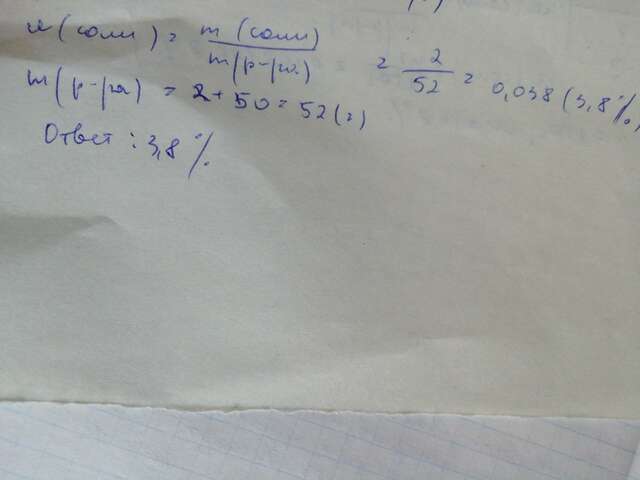 w(соли) = m(соли) / m(р-ра) = 2 / 52 = 0,038 (3,8%)
m(р-ра) = 2 + 50 = 52 (г)
Ответ: 3,8%